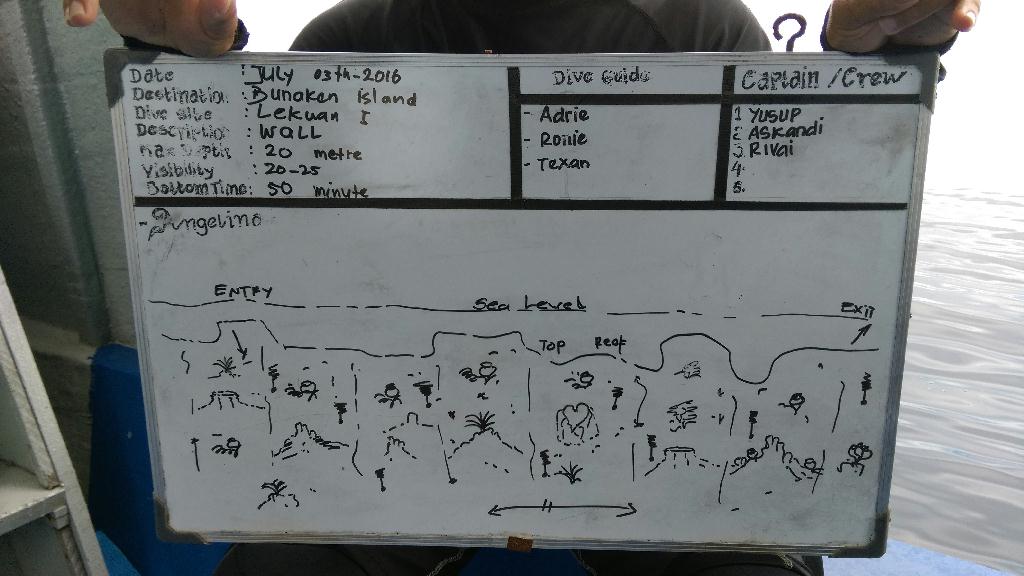 Date : July 03th-2016
Destination : Bunaken Island
Dive site : Lekuan I
Description : WALL
Max Depth : 20 metre
Visibility : 20-25
Bottom Time : 50 minute
Dive Guide
- Adrie
- Ronie
- Texan
Captain / Crew
1 YUSUP
2 ASKandi
3. RIVai
4.
5.
- Angelino
ENTRY
Sea Level
Exit
TOP Reef